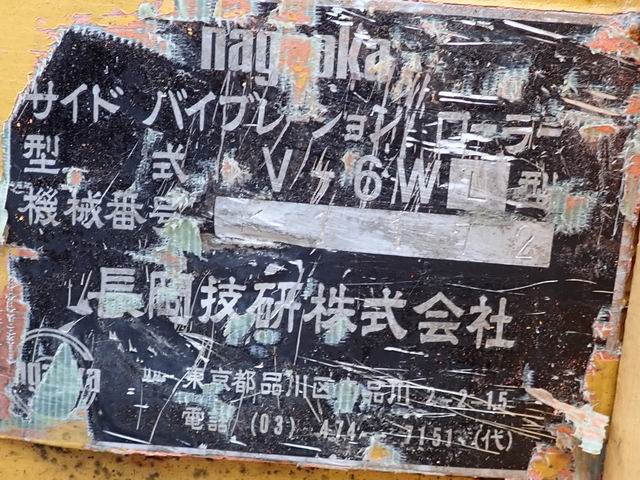 サイド バイブレーション ローラー
型 式 V-6W L 型
機械番号
長岡技研株式会社
東京都品川区 品川 2-2-15
電話 (03) 474-7151 (代)